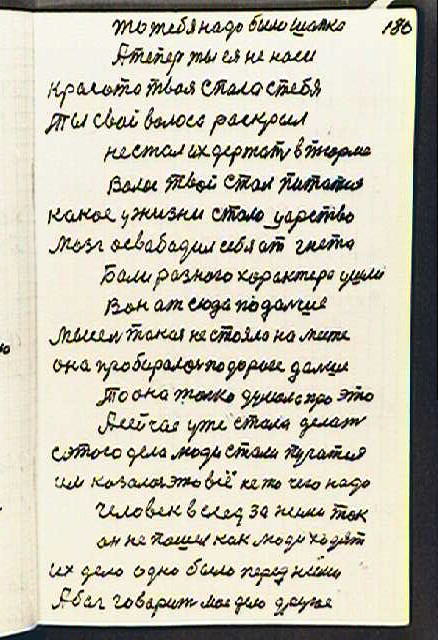 то тебя надо было шапка 180
А тепер ты ея не носи
красота твоя спала с тебя
Ты свои волоса раскрил
не стал их держать в тюрме
Волос твой стал питатся
какое у жизни стало царство
мозг освабадил себя от гнета
Боли разного характера ушли
Вон атсюда подалше
мысел такая не стояла на месте
она пробиралас по дороге далше
То она толко думала про это
А сейчас уже стала делат
с этого дела люди стали пугатся
им казалос это всё не то чего надо
Человек в след за ними так
он не пошел как люди ходят
их дело одно было перед ними
А бог говарит мое дело другое